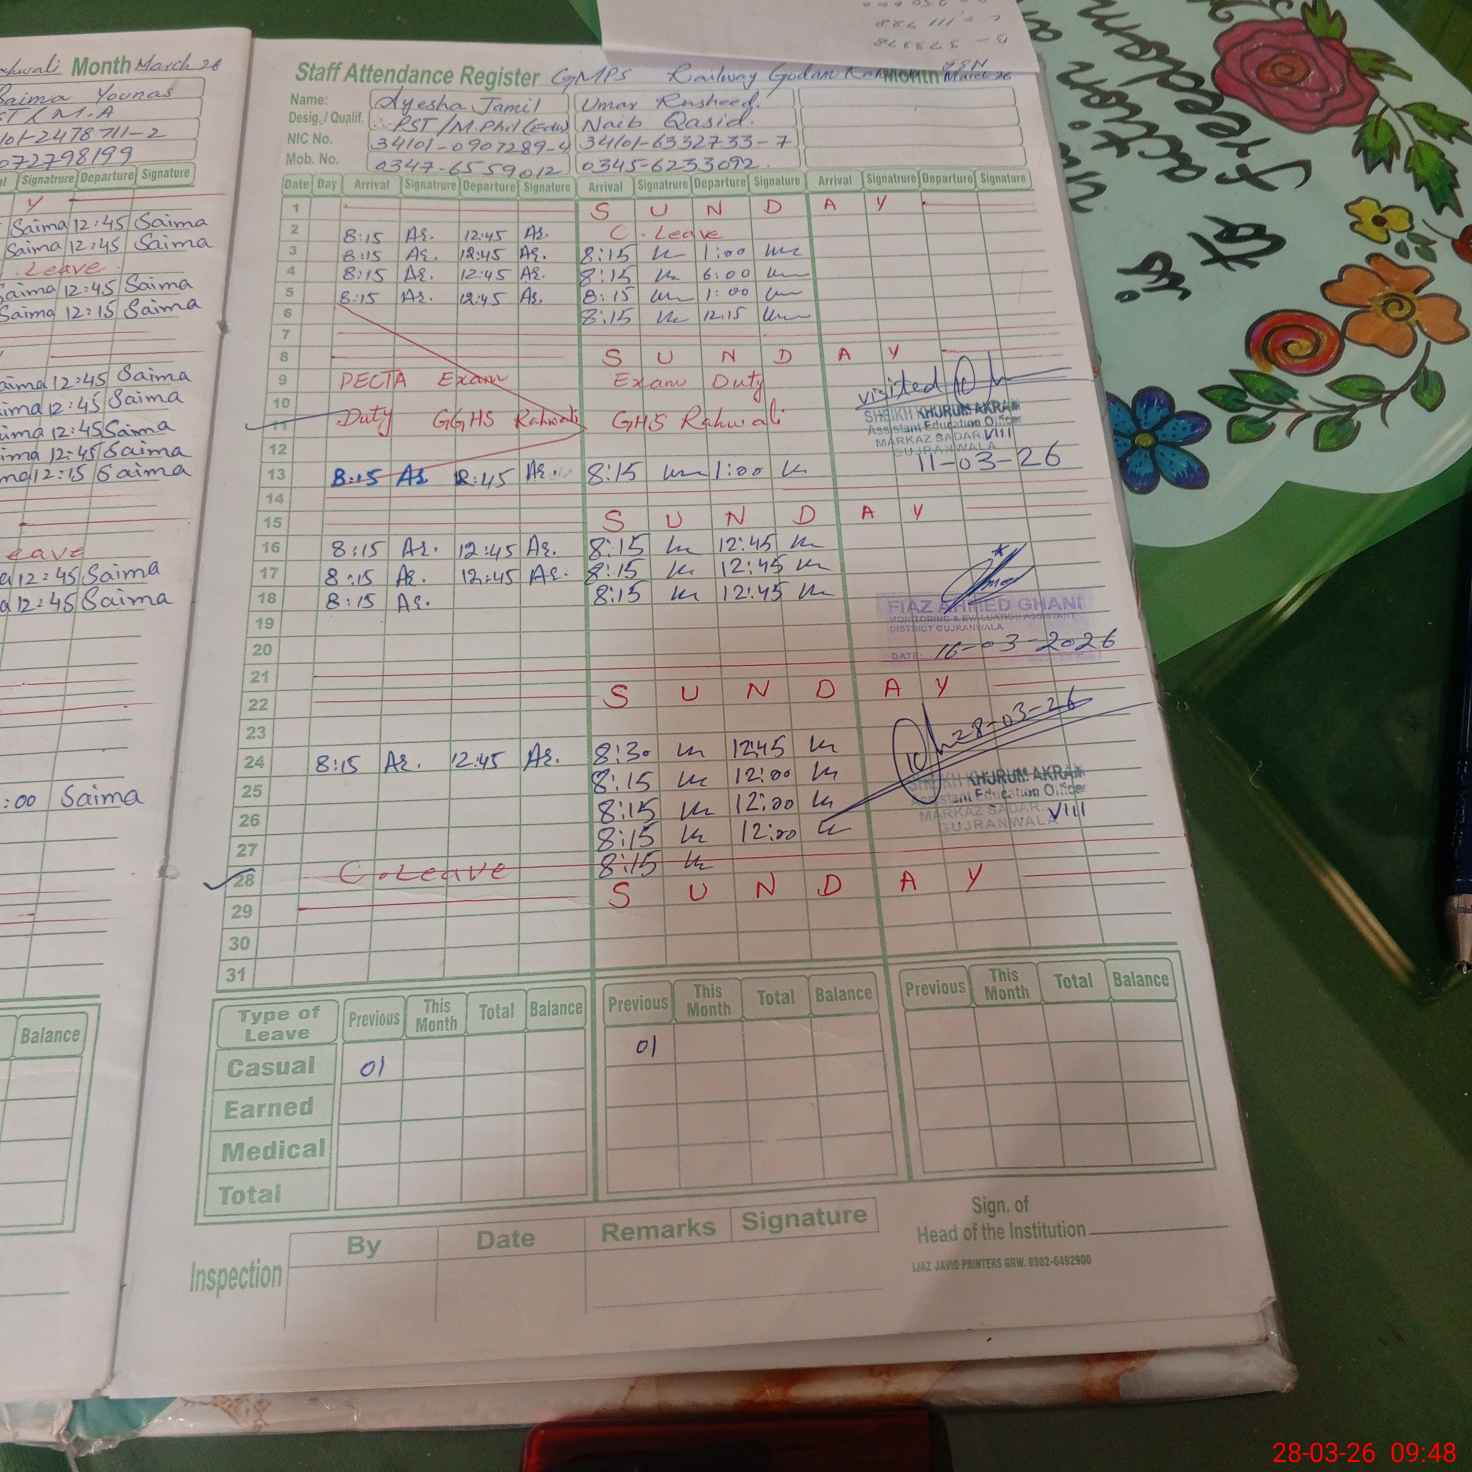 Month March 26
Saima Younas
ST / M.A
101-2478711-2
072798199
Signatrure Departure Signature
Y
Saima 12:45 Saima
Saima 12:45 Saima
Leave
Saima 12:45 Saima
Saima 12:15 Saima
Saima 12:45 Saima
Saima 12:45 Saima
Saima 12:45 Saima
Saima 12:45 Saima
Saima 12:15 Saima
eave
12:45 Saima
12:45 Saima
:00 Saima
Balance
Staff Attendance Register GMPS Railway Godam Month March 26
Name: Ayesha Jamil Umar Rasheed
Desig./ Qualif. PST/M.Phil(Edu) Naib Qasid
NIC No. 34101-0907289-4 34101-6332733-7
Mob. No. 0347-6559012 0345-6233092
Date Day Arrival Signatrure Departure Signature Arrival Signatrure Departure Signature Arrival Signatrure Departure Signature
1 S U N D A Y
2 8:15 As. 12:45 As. C. Leave
3 8:15 As. 12:45 As. 8:15 1:00
4 8:15 As. 12:45 As. 8:15 6:00
5 8:15 As. 12:45 As. 8:15 1:00
6 8:15 12:15
7
8 S U N D A Y
9 PECTA Exam Exam Duty
10
11 Duty GGHS Rahwali GHS Rahwali
visited
SHEIKH KHURUM AKRAM
Assistant Education Officer
MARKAZ SADAR VIII
GUJRANWALA
11-03-26
12
13 8:15 As. 12:45 As. 8:15 1:00
14
15 S U N D A Y
16 8:15 As. 12:45 As. 8:15 12:45
17 8:15 As. 12:45 As. 8:15 12:45
18 8:15 As. 8:15 12:45
FIAZ AHMED GHANI
MONITORING & EVALUATION ASSISTANT
DISTRICT GUJRANWALA
DATE: 16-03-2026
19
20
21
22 S U N D A Y
23
24 8:15 As. 12:45 As. 8:30 12:45
25 8:15 12:00
26 8:15 12:00
27 8:15 12:00
28 C. Leave 8:15
28-03-26
SHEIKH KHURUM AKRAM
Assistant Education Officer
MARKAZ SADAR VIII
GUJRANWALA
29 S U N D A Y
30
31
Type of Leave Previous This Month Total Balance Previous This Month Total Balance Previous This Month Total Balance
Casual 01 01
Earned
Medical
Total
Inspection By Date Remarks Signature
Sign. of
Head of the Institution
IJAZ JAVID PRINTERS GRW. 0302-6492900
28-03-26 09:48